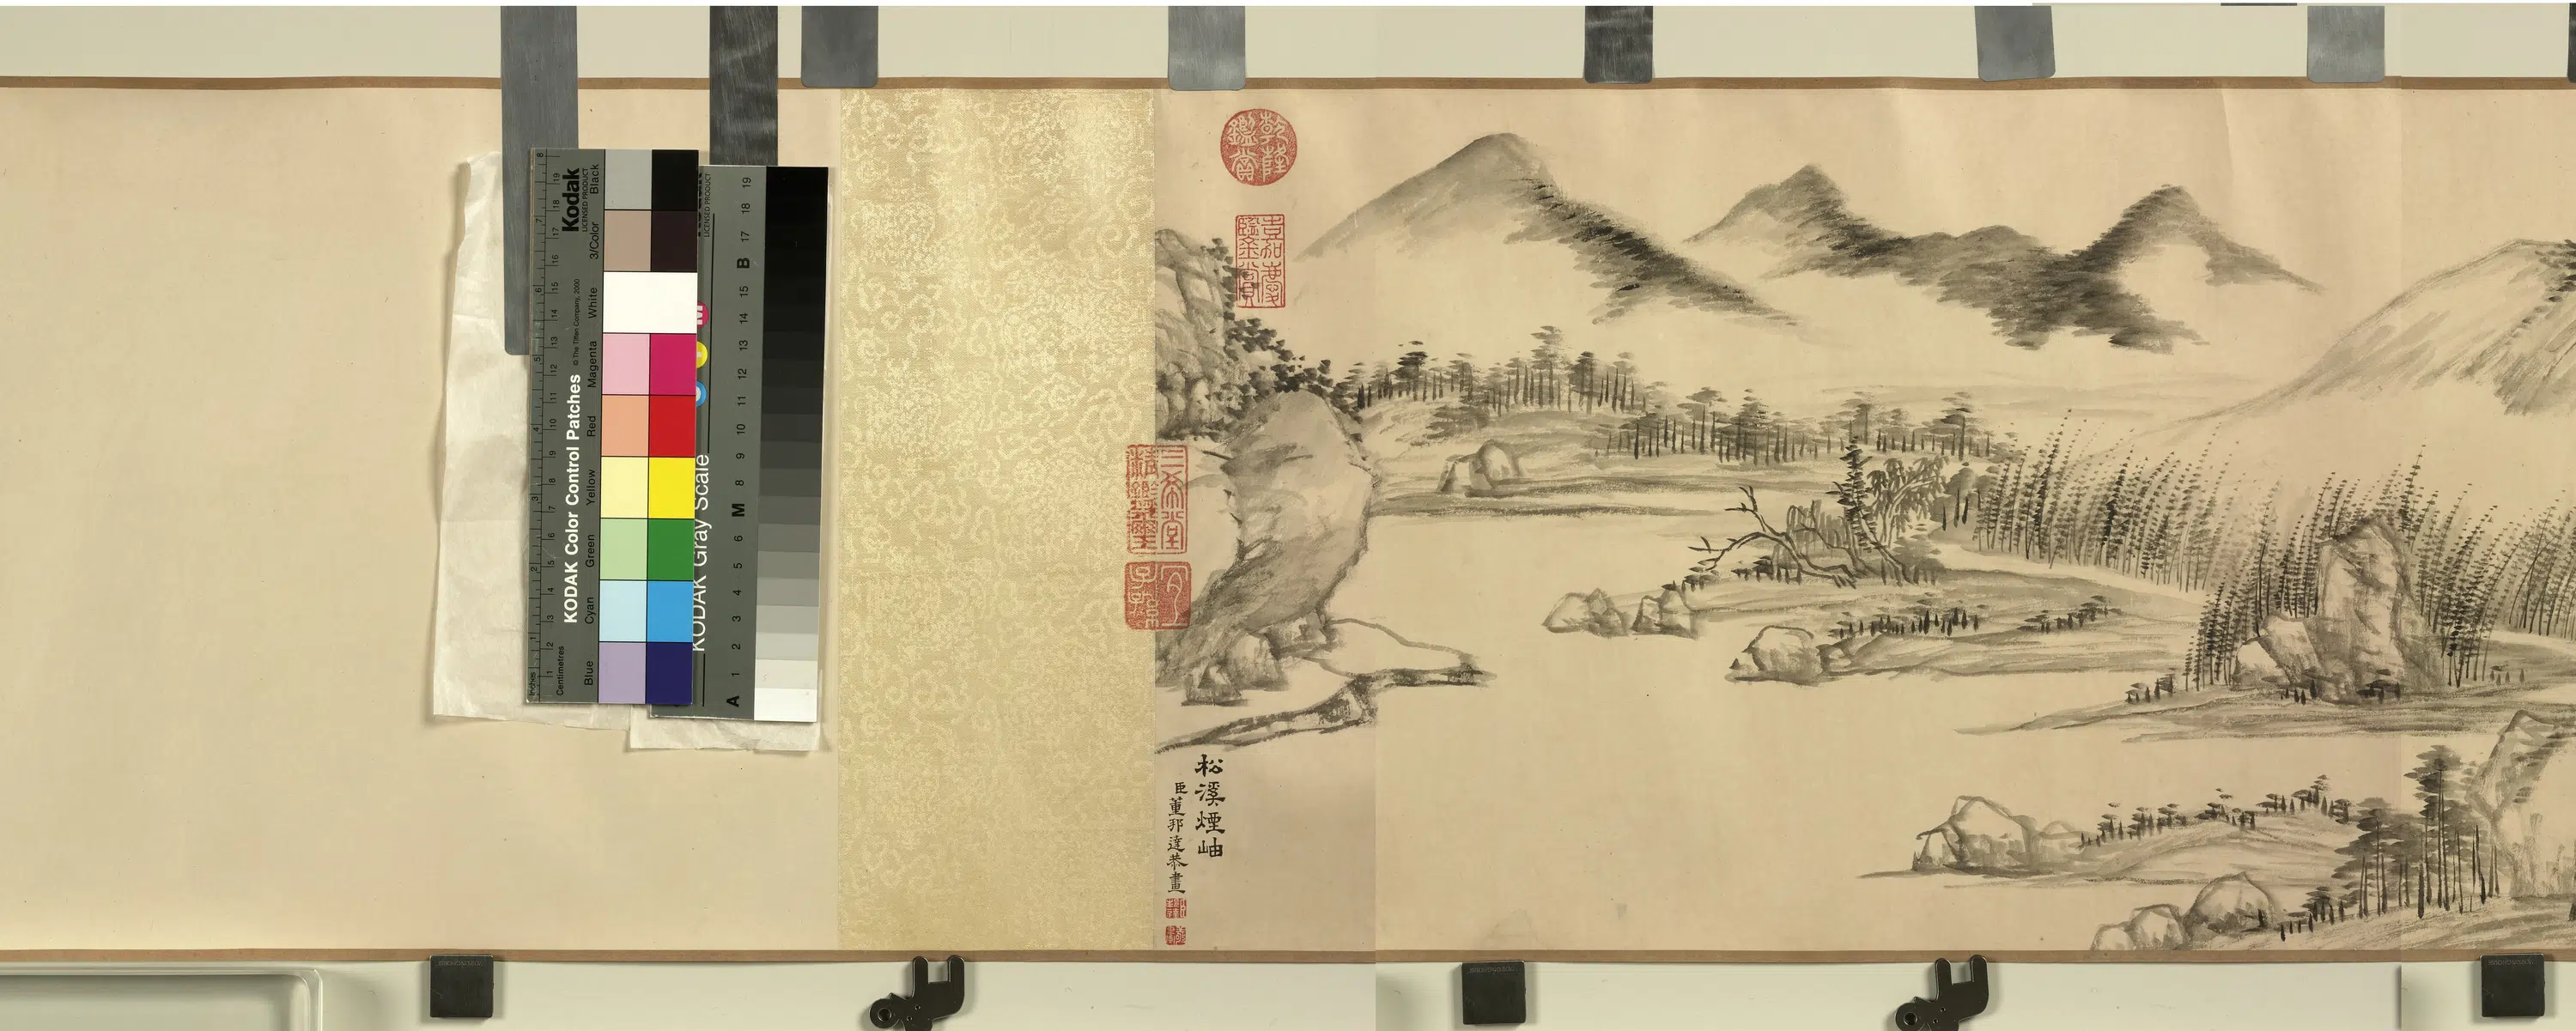 乾隆鑑賞
嘉慶鑒賞
三希堂精鑑璽
宜子孫
松溪煙岫
臣董邦達恭畫
Kodak
LICENSED PRODUCT
KODAK Color Control Patches
© The Tiffen Company, 2000
Blue Cyan Green Yellow Red Magenta White 3/Color Black
Inches 1 2 3 4 5 6 7 8
Centimetres 1 2 3 4 5 6 7 8 9 10 11 12 13 14 15 16 17 18 19
KODAK Gray Scale
LICENSED PRODUCT
A 1 2 3 4 5 6 M 8 9 10 11 12 13 14 15 B 17 18 19